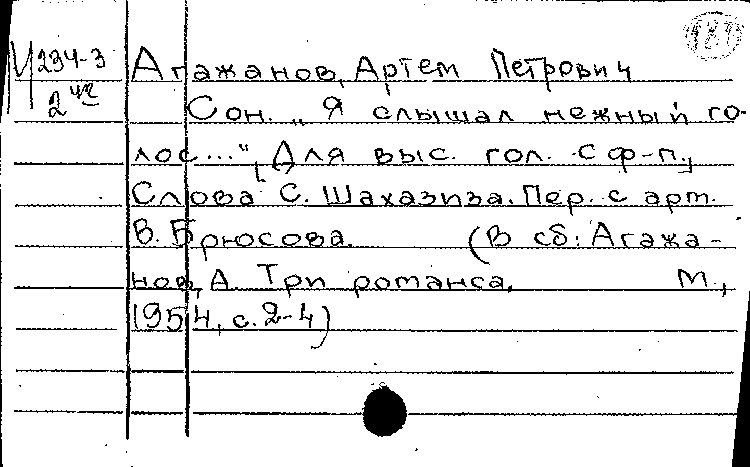 181
Ч234-3
2 чз
Агажанов, Артем Петрович
Сон. „Я слышал нежный го-
лос...", [Для выс. гол. с ф-п.,]
Слова С. Шахазиза. Пер. с арм.
В. Брюсова. (В сб: Агажа-
нов, А. Три романса. М.,
1954, с. 2-4)